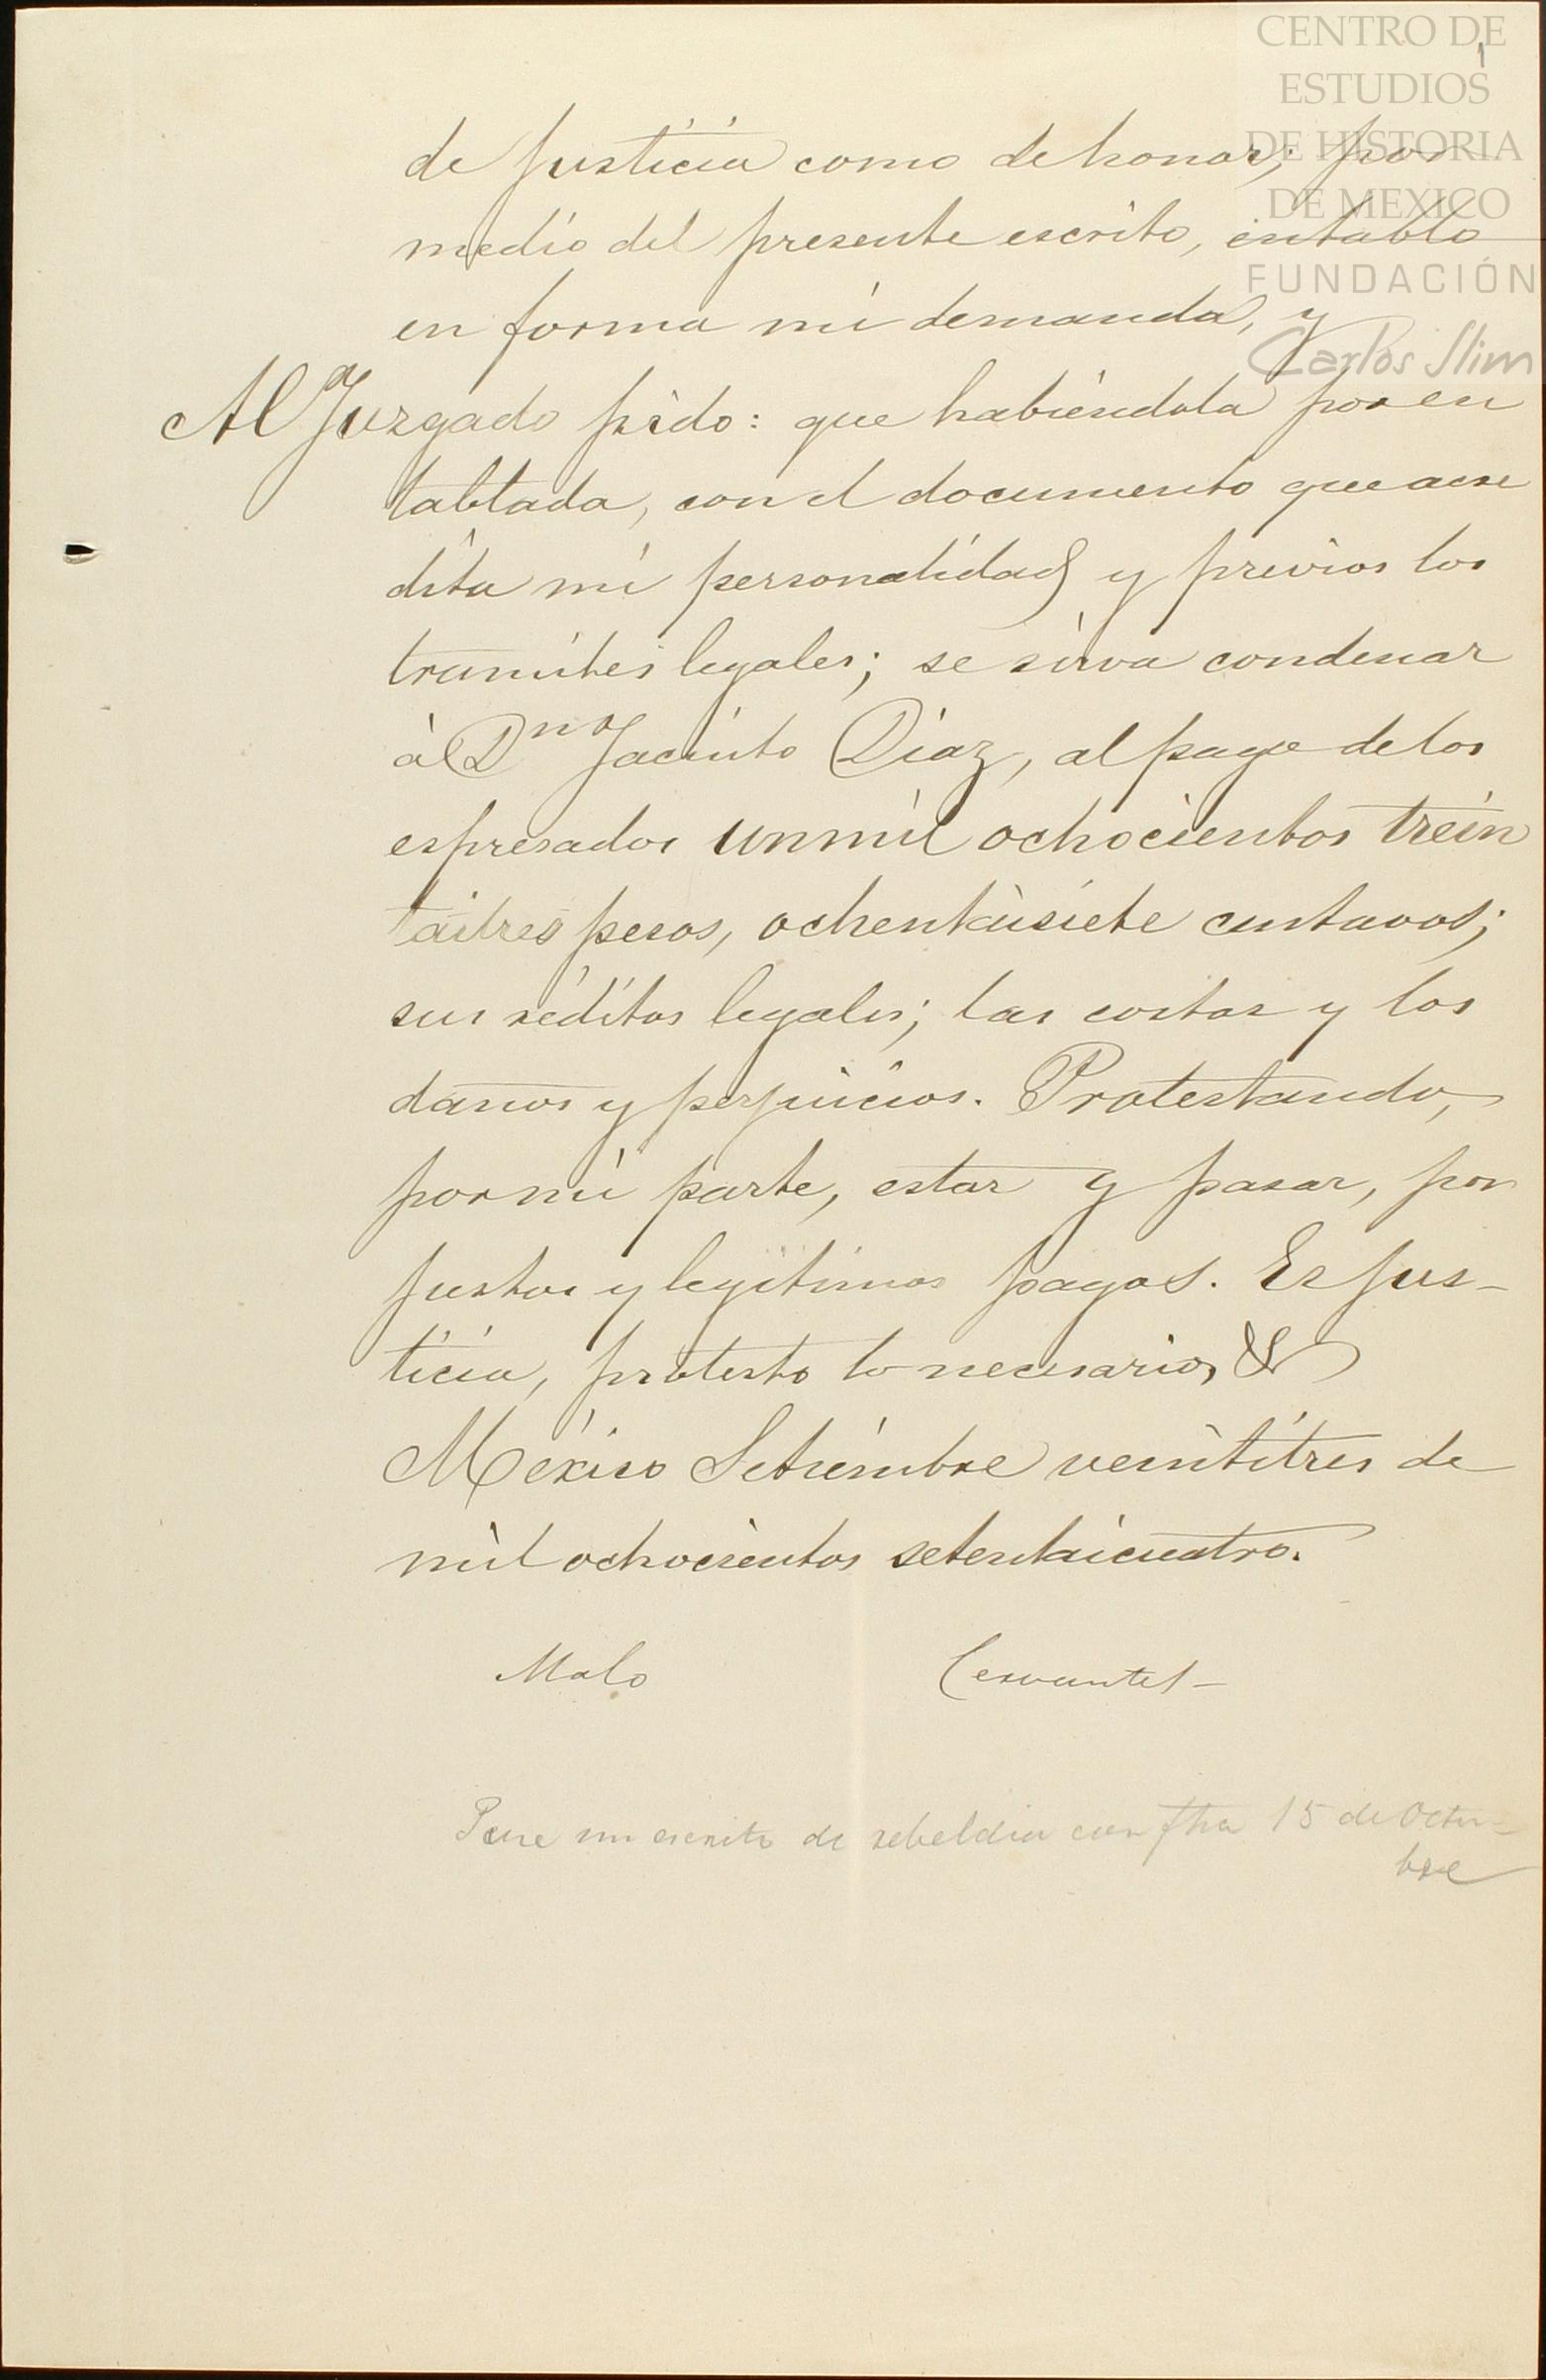 CENTRO DE
ESTUDIOS
DE HISTORIA
DE MEXICO
FUNDACIÓN
Carlos Slim
1
de justicia como de honor; por
medio del presente escrito, entablo
en forma mi demanda, y
Al Juzgado pido: que habiéndola por en
tablada, con el documento que acre
dita mi personalidad y previos los
tramites legales; se sirva condenar
à Dn Jacinto Diaz, al pago de los
espresados un mil ochocientos trein
taitres pesos, ochentaisiete centavos;
sus réditos legales; las costas y los
danos y perjuicios. Protestando,
por mi parte, estar y pasar, por
justos y legitimos pagos. Es jus-
ticia, protesto lo necesario, &
México Setiembre veintitres de
mil ochocientos setentaicuatro.
Malo Cervantes-
Puse un escrito de rebeldia con fha 15 de Octu-
bre